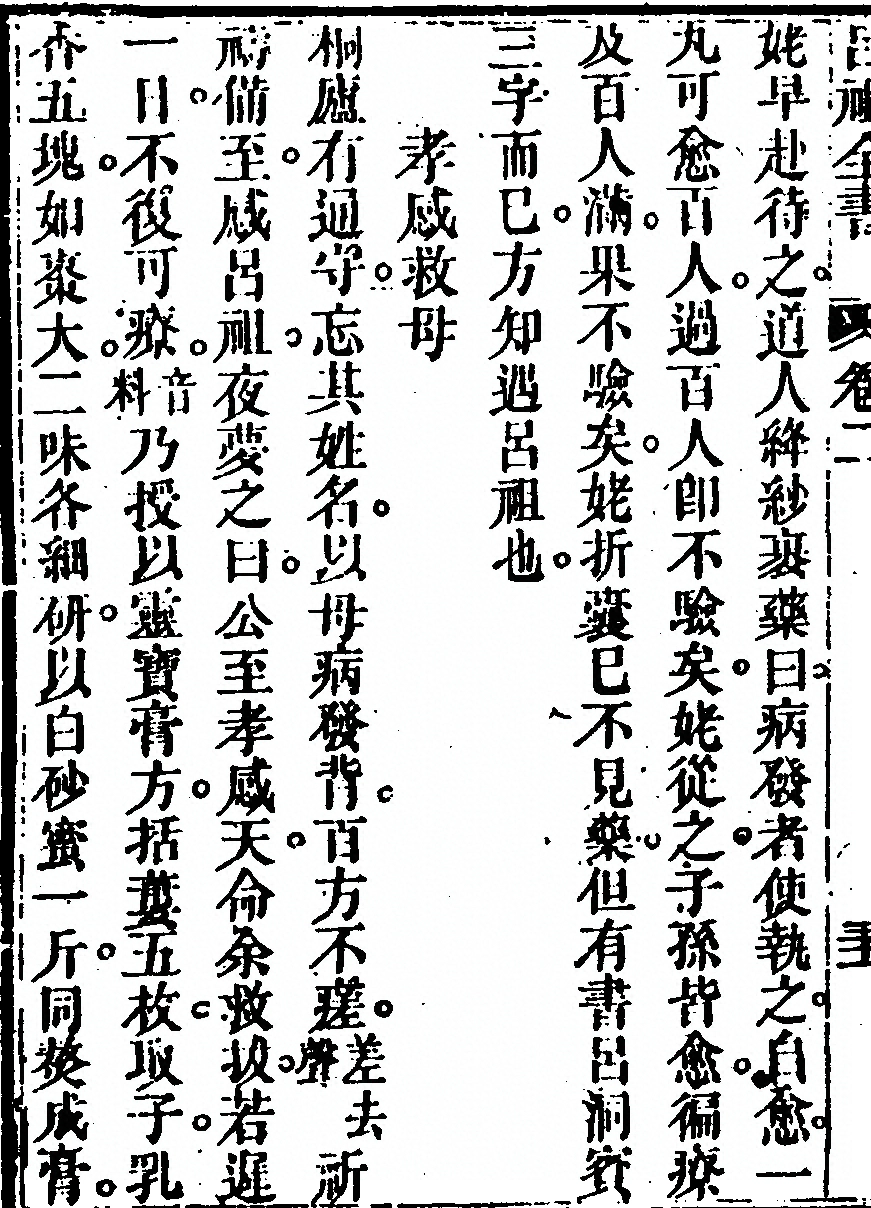 呂祖全書 卷二
姥早赴待之道人絳紗裹藥曰病發者使執之自愈一
丸可愈百人過百人卽不驗矣姥從之子孫皆愈徧療
及百人滿果不驗矣姥折囊已不見藥但有書呂洞賓
三字而已方知遇呂祖也
孝感救母
桐廬有通守忘其姓名以母病發背百方不瘥差去聲祈
禱備至感呂祖夜夢之曰公至孝感天命余救拔若遲
一日不復可療音料乃授以靈寶膏方括蔞五枚取子乳
香五塊如棗大二味各細研以白砂蜜一斤同熬成膏